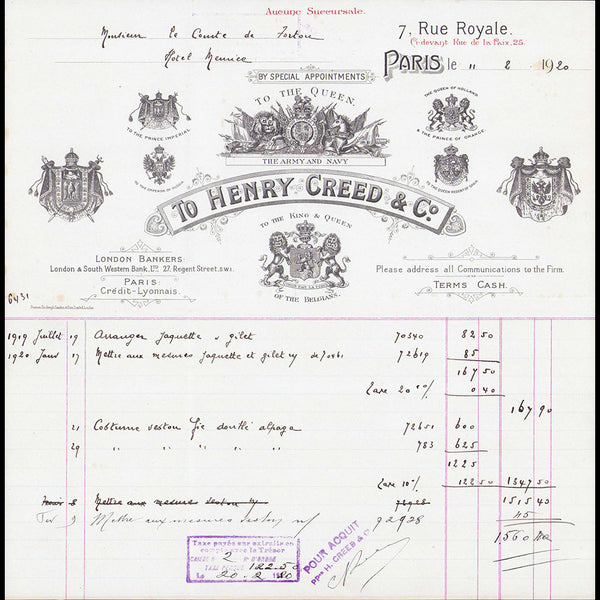 Aucune Succursale.
Monsieur le Comte de
Hotel Meurice
7, Rue Royale.
Ci-devant Rue de la Paix, 25.
PARIS le 11 2 1920
BY SPECIAL APPOINTMENTS
TO THE QUEEN.
THE ARMY AND NAVY
TO THE PRINCE IMPERIAL
THE QUEEN OF HOLLAND
TO THE PRINCE OF ORANGE.
TO THE EMPEROR OF RUSSIA
TO THE QUEEN REGENT OF SPAIN
TO HENRY CREED & Co.
TO THE KING & QUEEN
OF THE BELGIANS.
LONDON BANKERS:
London & South Western Bank, Ltd. 27, Regent Street, S.W.1.
PARIS:
Crédit-Lyonnais.
Please address all Communications to the Firm.
TERMS CASH.
6431
1919 Juillet 19 Arranger Jaquette & gilet 70340 82 50
1920 Janv 17 Mettre aux mesures Jaquette et gilet 72619 85
167 50
Taxe 20 % 0 40
167 90
21 Costume veston doublé alpaga 72651 600
29 " " " " " 783 625
1225
Taxe 10 % 122 50 1347 50
8 Mettre aux mesures veston 1515 40
9 Mettre aux mesures veston 72928 45
1560 40
Taxe payée sur extraits en
compte avec le Trésor
2
122.50
Le 20-2-20
POUR ACQUIT
PPon H. CREED & Co